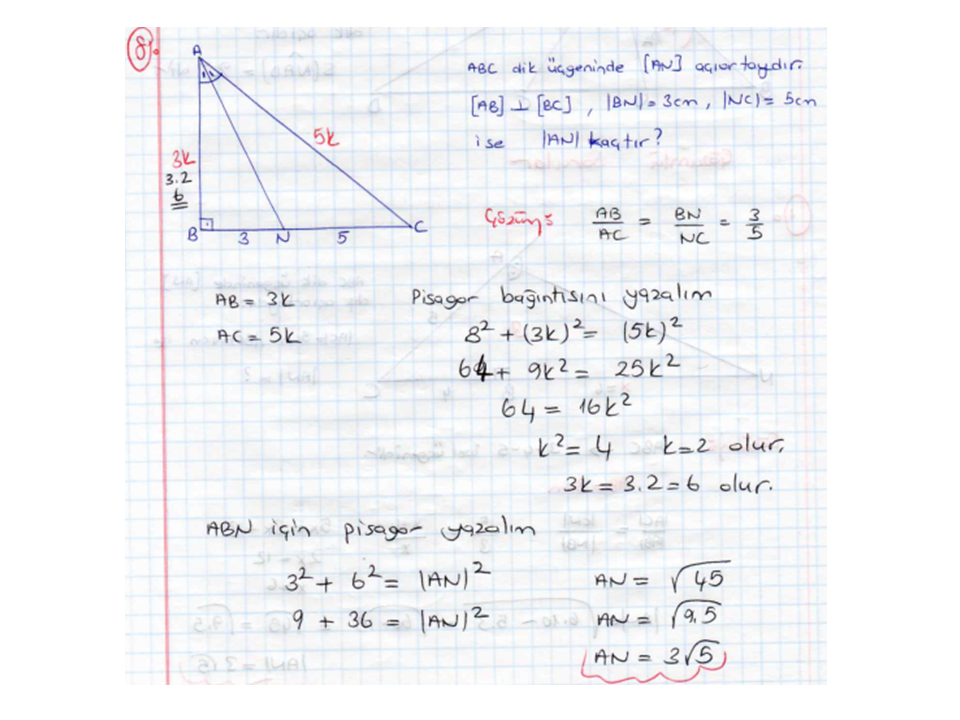 8).
A
ABC dik üçgeninde [AN] açıortaydır.
[AB] ⊥ [BC] , |BN|= 3cm , |NC|= 5cm
ise |AN| kaçtır?
5k
3k
3.2
6
B 3 N 5 C
Çözüm: AB/AC = BN/NC = 3/5
AB = 3k
AC = 5k
Pisagor bağıntısını yazalım
8² + (3k)² = (5k)²
64 + 9k² = 25k²
64 = 16k²
k² = 4 k=2 olur.
3k = 3.2 = 6 olur.
ABN için pisagor yazalım
3² + 6² = |AN|²
9 + 36 = |AN|²
AN = √45
AN = √9.5
AN = 3√5